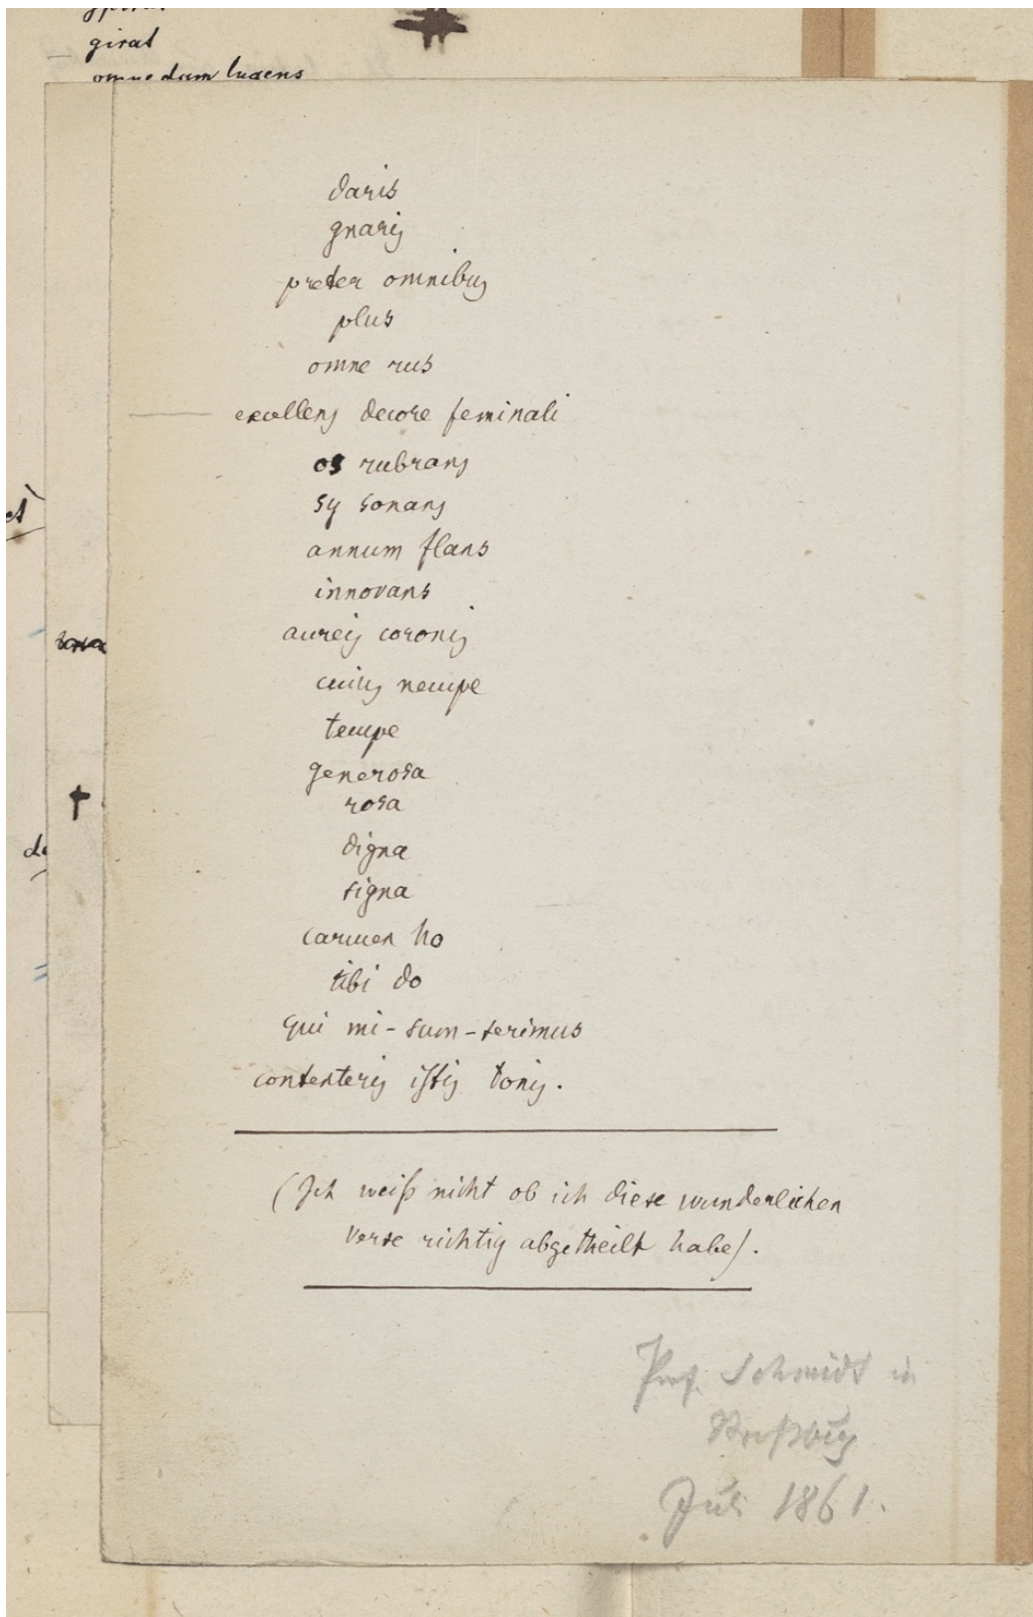 girat
omne dum lucens
daris
gnaris
preter omnibus
plus
omne rus
excellens decore feminali
os rubrans
sy sonans
annum flans
innovans
aureis coronis
cuius nempe
tempe
generosa
rosa
digna
signa
carmen ho
tibi do
qui mi-sum-serimus
contexteris istis tonis.
(Ich weiß nicht ob ich diese wunderlichen
Verse richtig abgetheilt habe).
Prof. Schmidt in
Straßburg
Juli 1861.